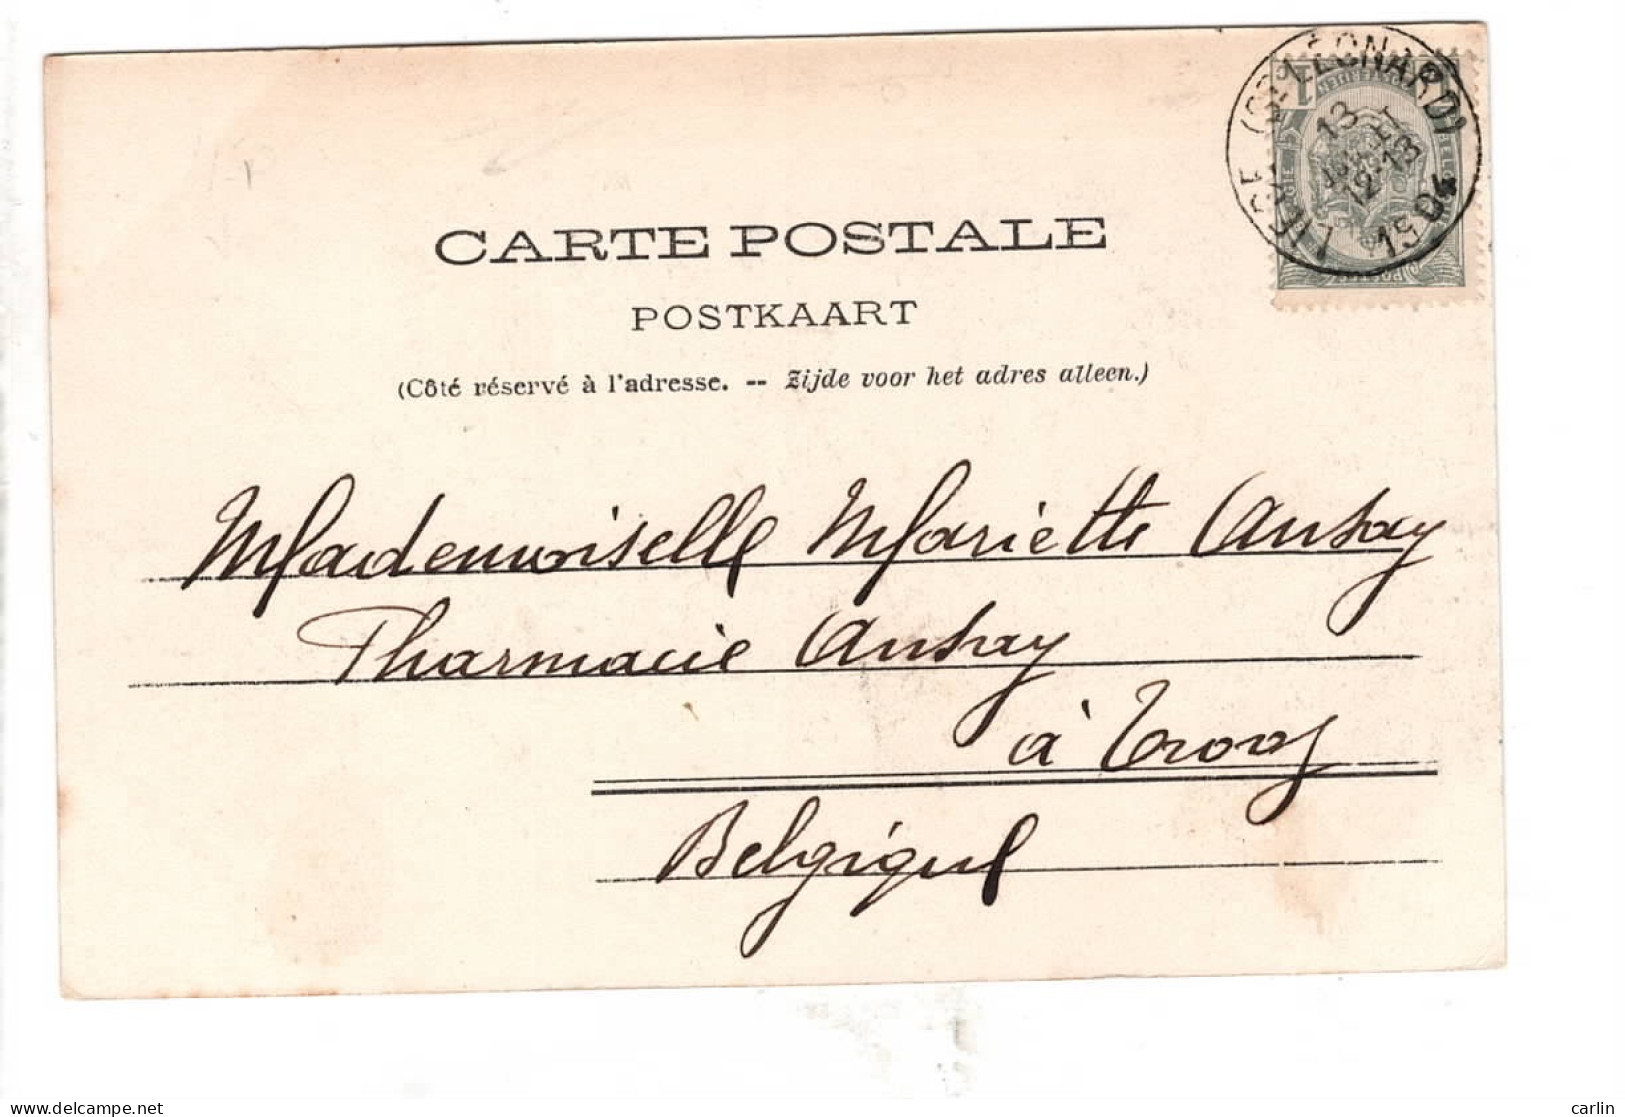 LIEGE (ST LEONARD)
13
JUILLET
12-13
1904
1c
CARTE POSTALE
POSTKAART
(Côté réservé à l'adresse. -- Zijde voor het adres alleen.)
Mademoiselle Mariette Ansay
Pharmacie Ansay
à Trooz
Belgique
delcampe.net
carlin